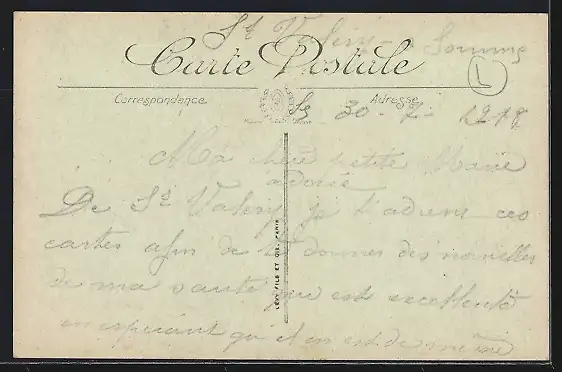 St Valery - Somme
Carte Postale
L
Correspondance
Adresse
30 - 7 - 1918
Ma chère petite Marie
adorée
De St Valery je t'adresse ces
cartes afin de te donner des nouvelles
de ma santé qui est excellente
en espérant qu'il en est de même
LÉVY FILS ET CIE, PARIS